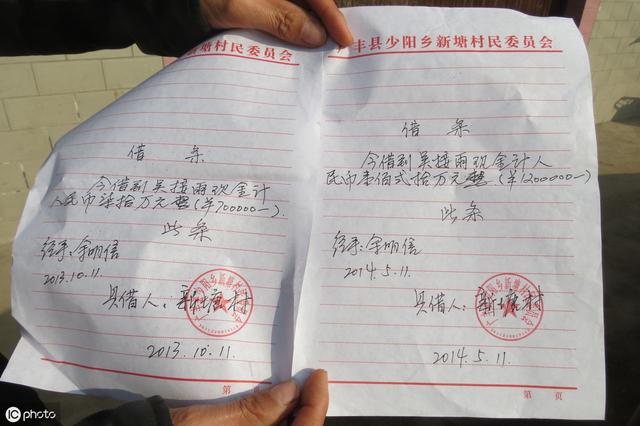 新塘村民委员会
借 条
今借到吴接雨现金计
人民币柒拾万元整(¥700000—).
此条
经手:余明信
2013.10.11.
具借人:新塘村
2013.10.11.
第 页
丰县少阳乡新塘村民委员会
借 条
今借到吴接雨现金计人
民币壹佰弍拾万元整(¥1200000—)
此条
经手:余明信
2014.5.11.
具借人:新塘村
2014.5.11.
第 页
iC photo